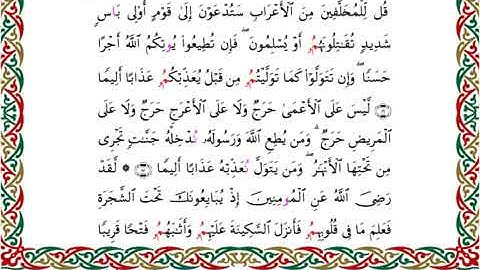 قُل لِّلْمُخَلَّفِينَ مِنَ ٱلْأَعْرَابِ سَتُدْعَوْنَ إِلَىٰ قَوْمٍ أُو۟لِى بَاسٍ
شَدِيدٍ تُقَٰتِلُونَهُمُۥ أَوْ يُسْلِمُونَ ۖ فَإِن تُطِيعُوا۟ يُوتِكُمُ ٱللَّهُ أَجْرًا
حَسَنًا ۖ وَإِن تَتَوَلَّوْا۟ كَمَا تَوَلَّيْتُمُۥ مِن قَبْلُ يُعَذِّبْكُمُۥ عَذَابًا أَلِيمًا
لَيْسَ عَلَى ٱلْأَعْمَىٰ حَرَجٌ وَلَا عَلَى ٱلْأَعْرَجِ حَرَجٌ وَلَا عَلَى
ٱلْمَرِيضِ حَرَجٌ ۗ وَمَن يُطِعِ ٱللَّهَ وَرَسُولَهُۥ نُدْخِلْهُ جَنَّٰتٍ تَجْرِى
مِن تَحْتِهَا ٱلْأَنْهَٰرُ ۖ وَمَن يَتَوَلَّ نُعَذِّبْهُ عَذَابًا أَلِيمًا ۞ لَّقَدْ
رَضِىَ ٱللَّهُ عَنِ ٱلْمُومِنِينَ إِذْ يُبَايِعُونَكَ تَحْتَ ٱلشَّجَرَةِ
فَعَلِمَ مَا فِى قُلُوبِهِمُۥ فَأَنزَلَ ٱلسَّكِينَةَ عَلَيْهِمُۥ وَأَثَٰبَهُمُۥ فَتْحًا قَرِيبًا